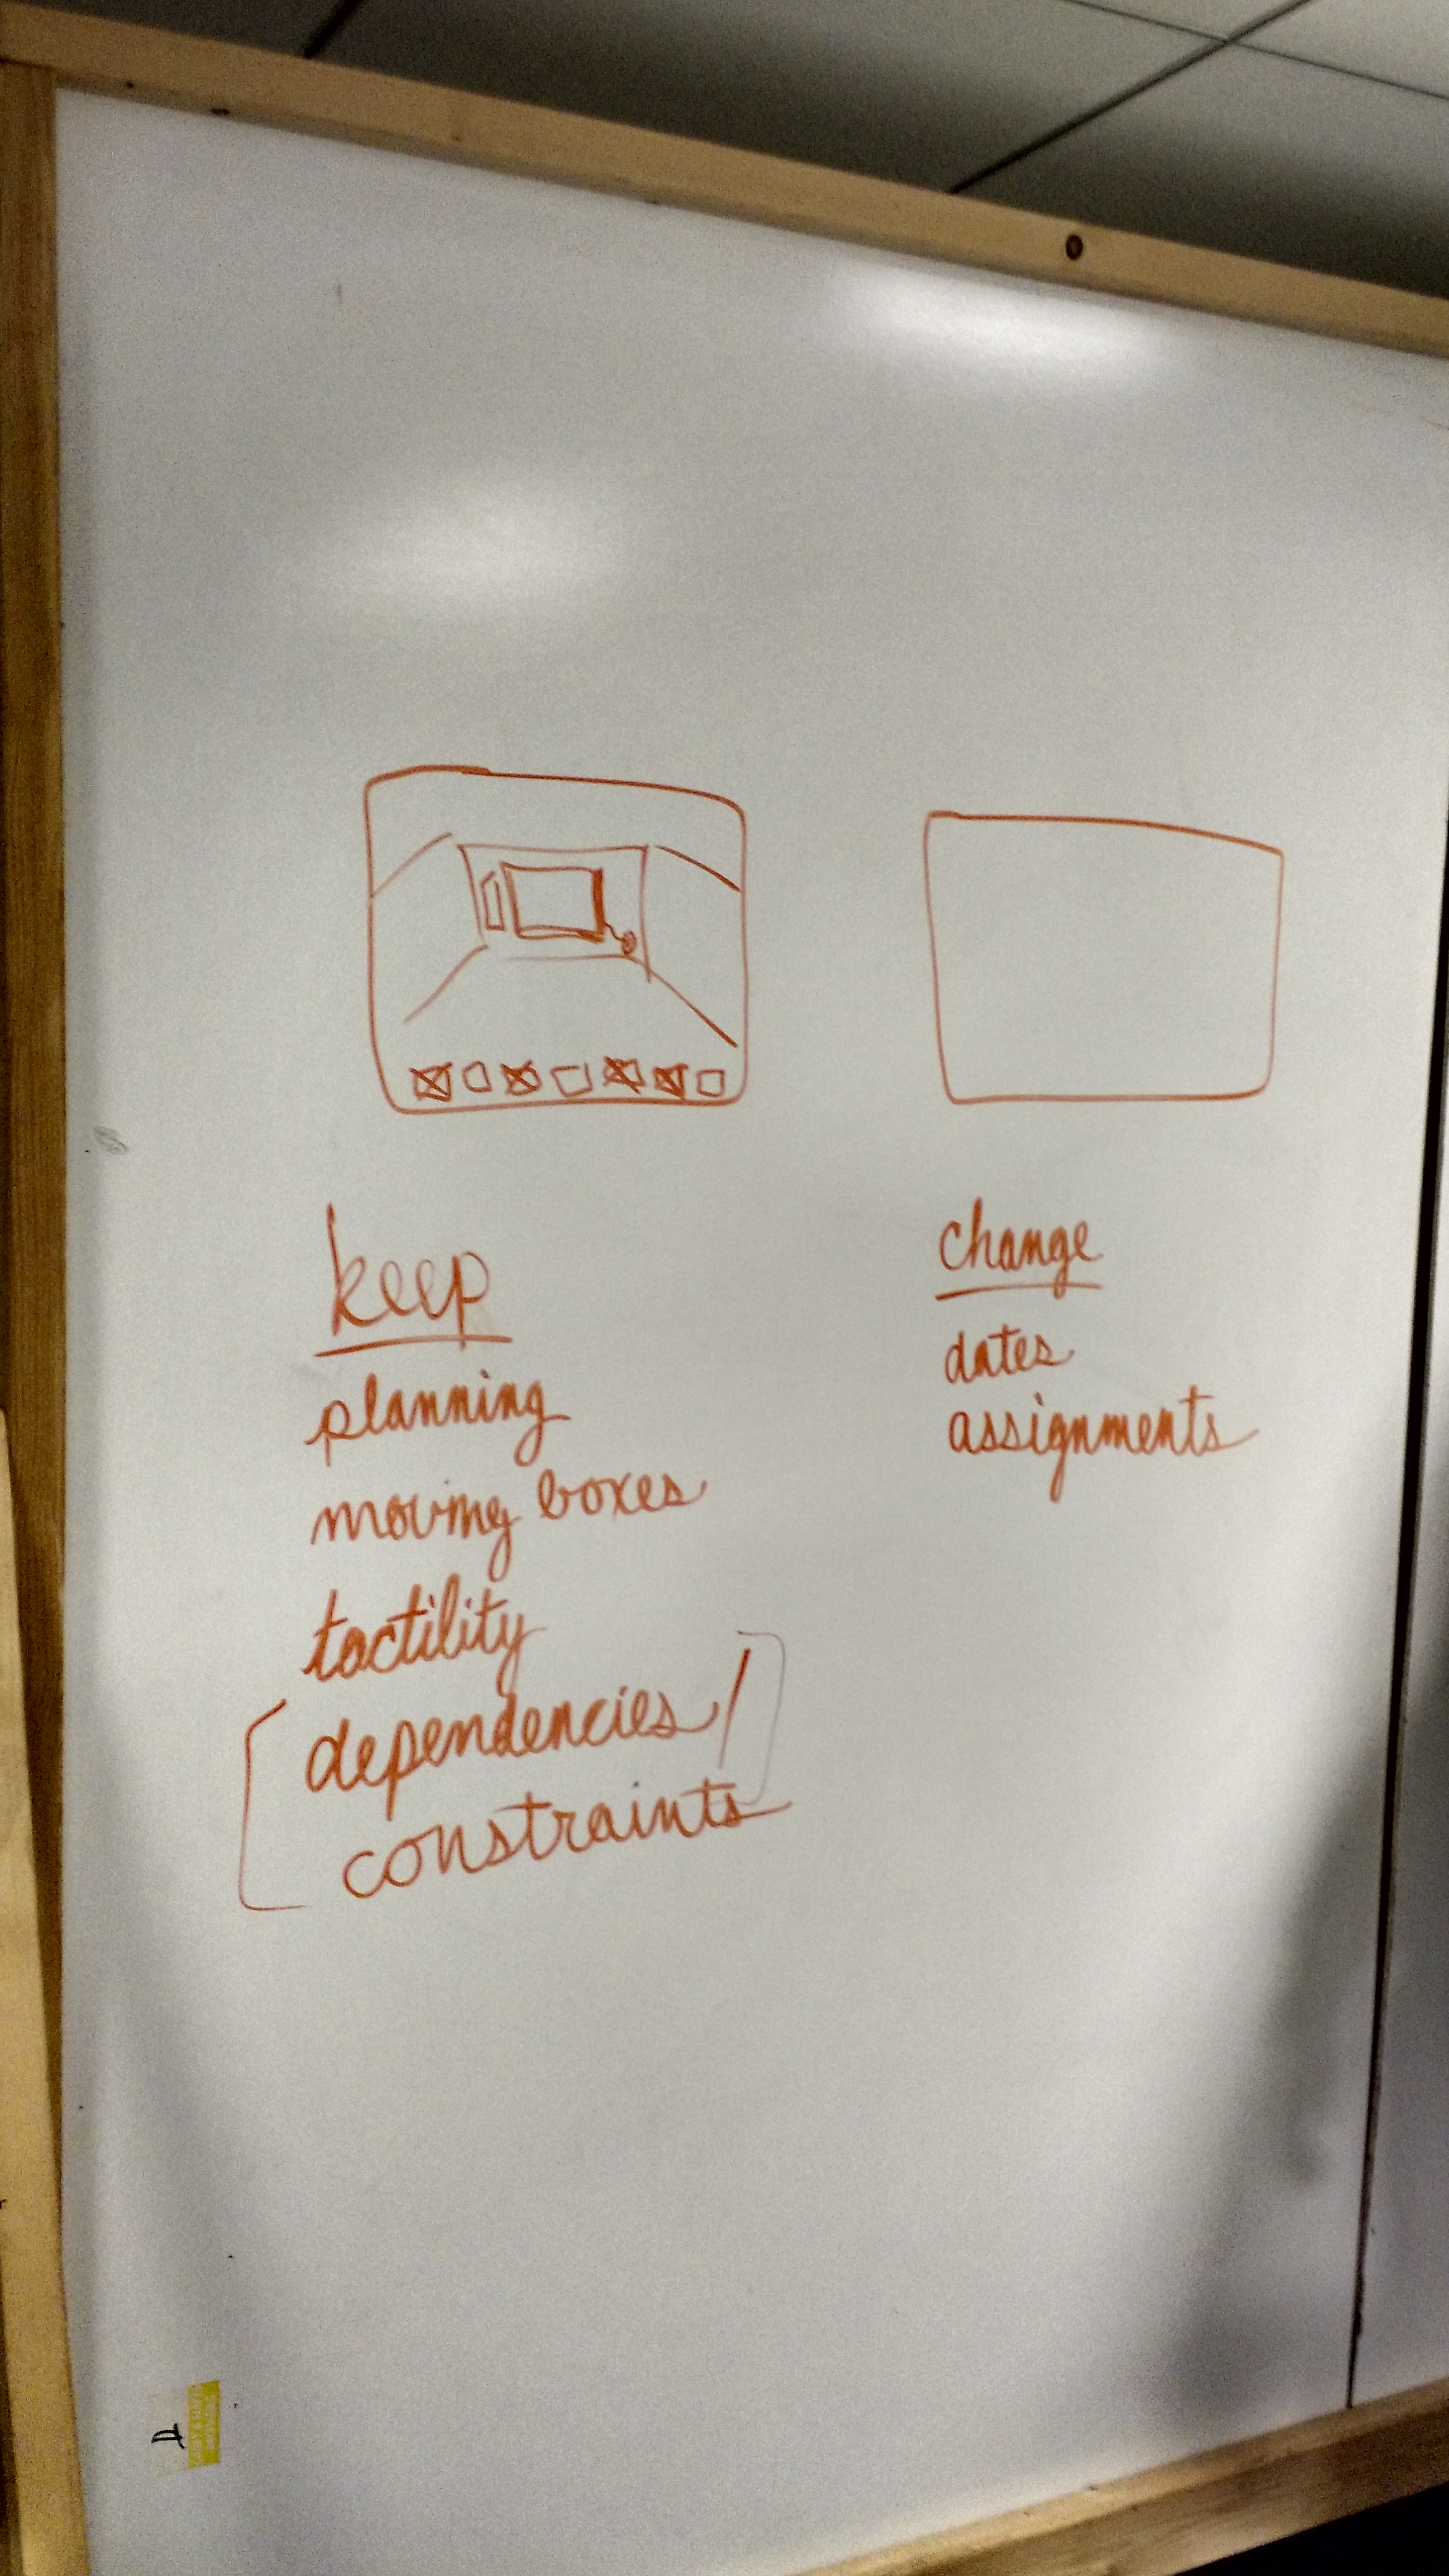 keep
planning
moving boxes
tactility
[dependencies /
constraints]
change
dates
assignments